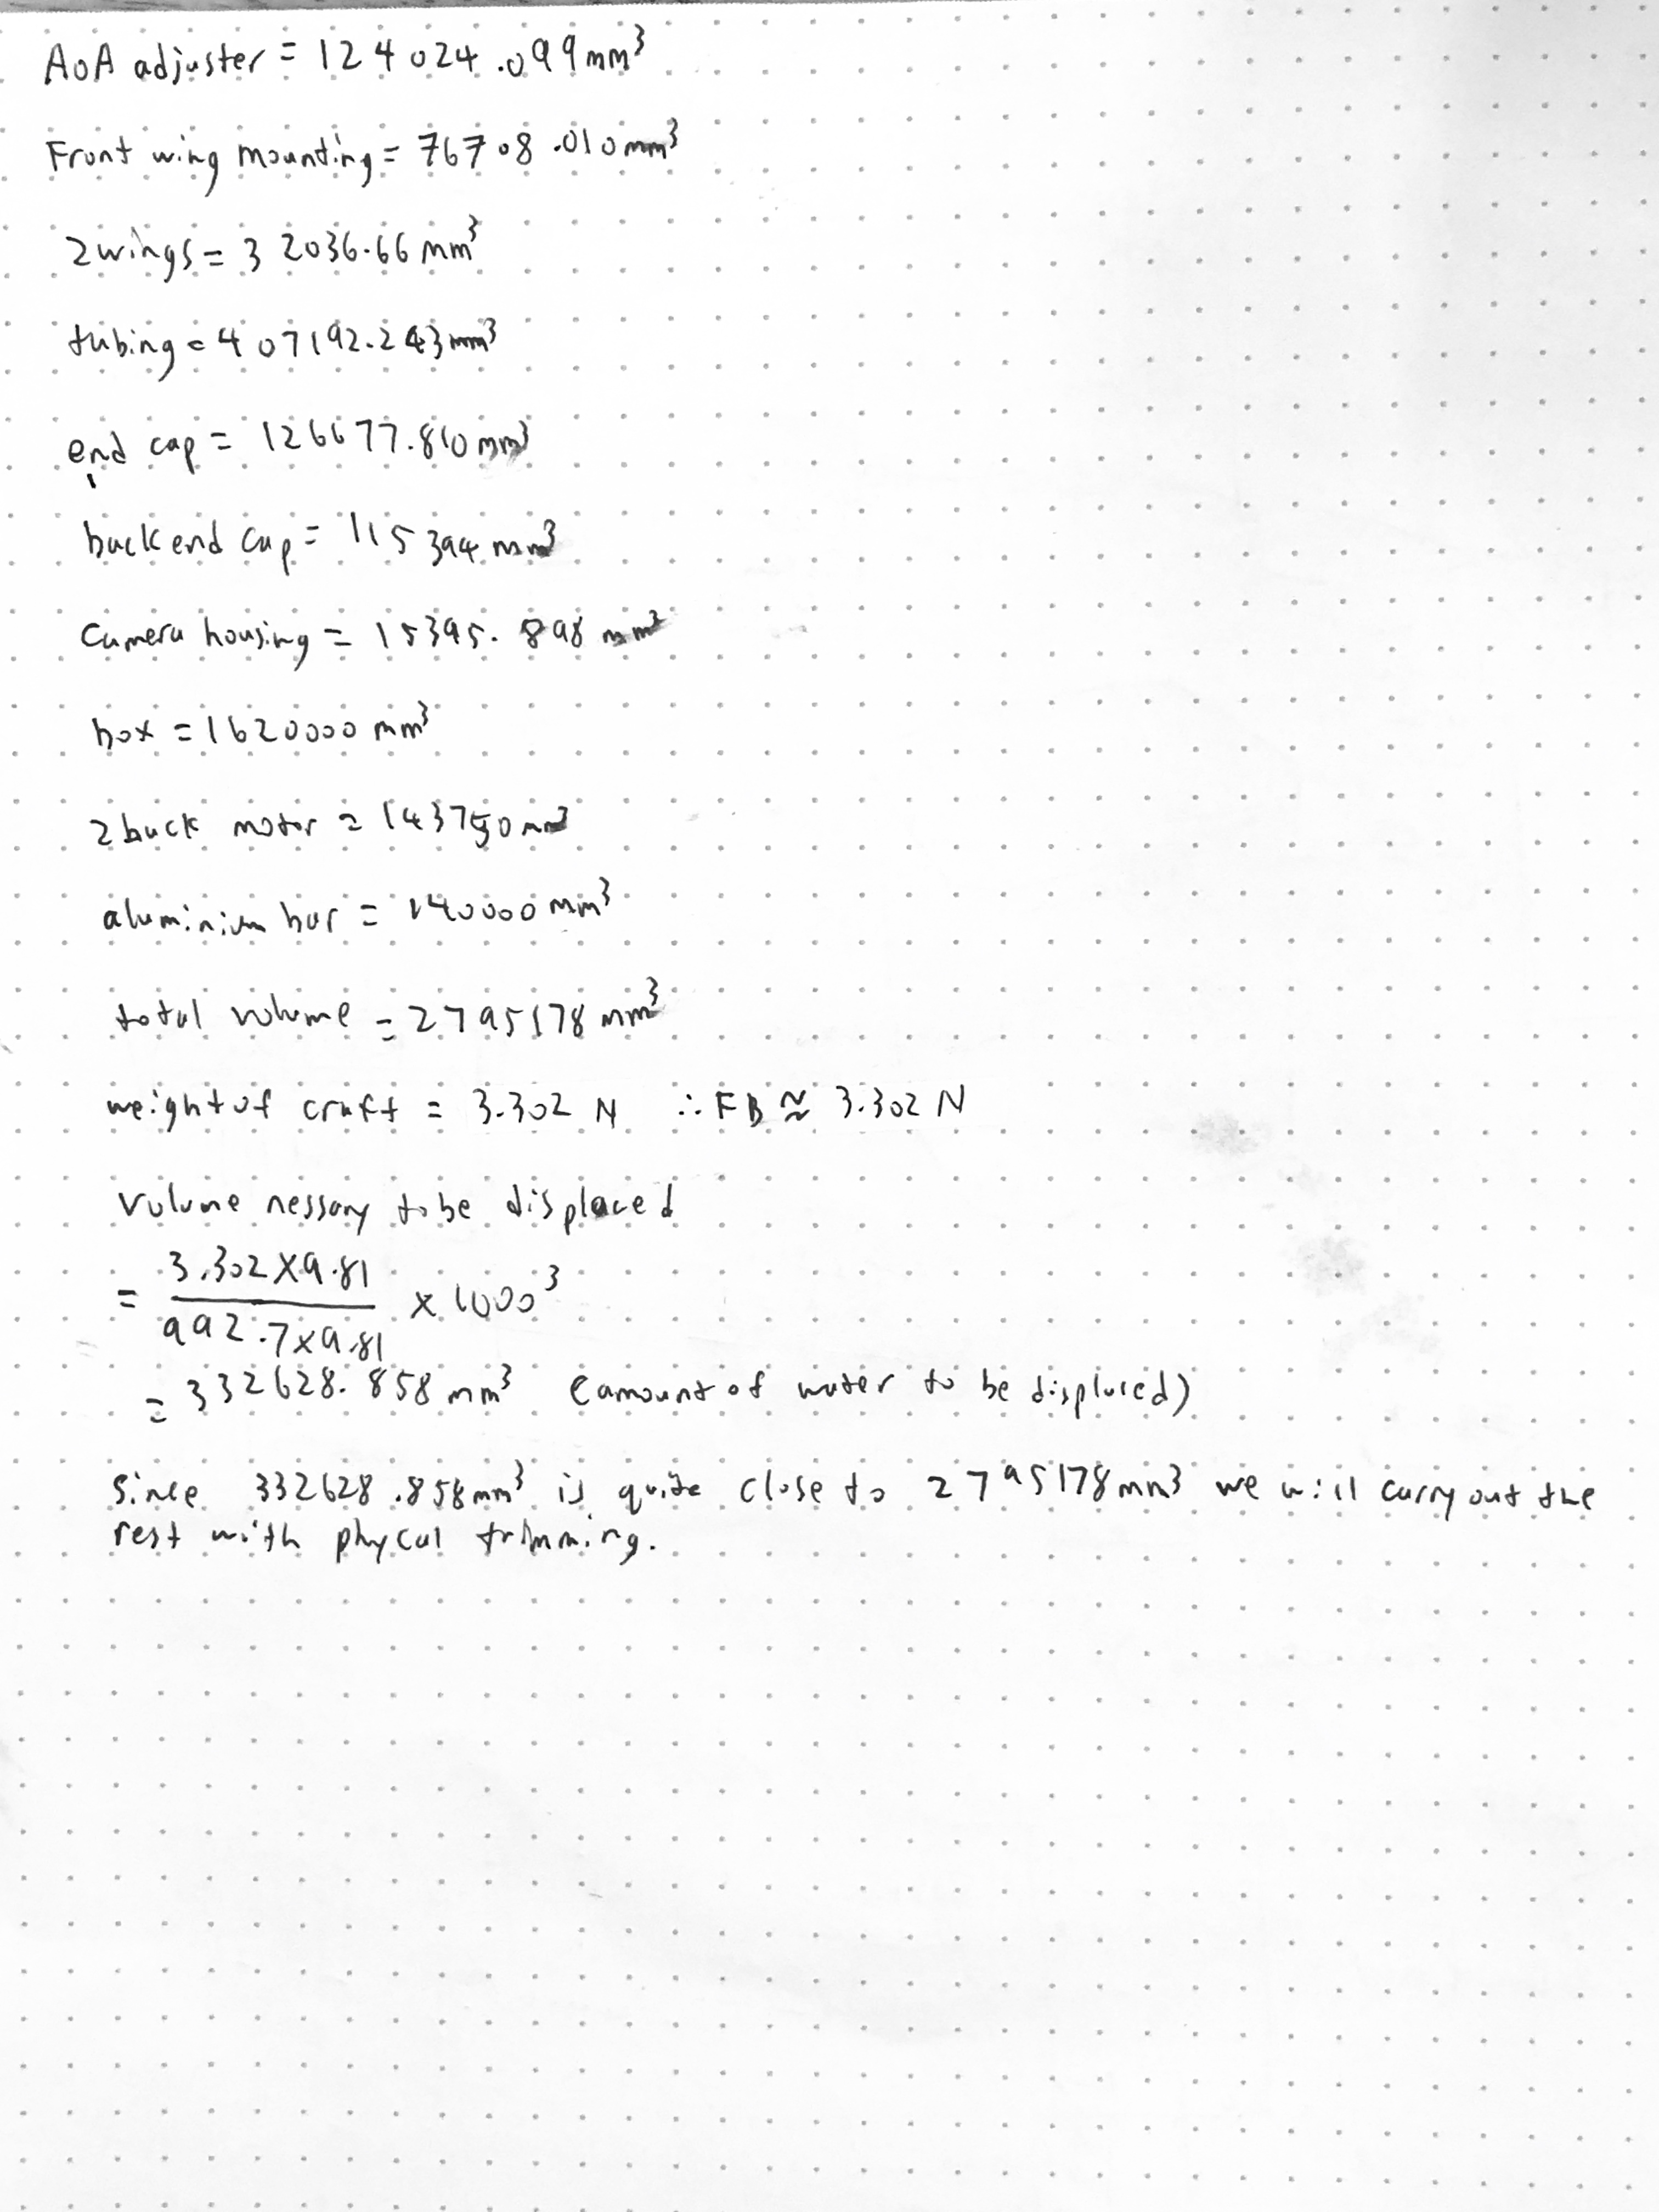 AoA adjuster = 124024.099mm³
Front wing mounting = 76708.010mm³
2 wings = 32036.66 mm³
tubing = 407192.243mm³
end cap = 126677.810mm³
back end cap = 115394 mm³
Camera housing = 15395.898 mm³
box = 1620000 mm³
2 back motor = 143750mm³
aluminium bar = 140000 mm³
total volume = 2795178 mm³
weight of craft = 3.302 N ∴ FB ≈ 3.302 N
Volume nessary to be displaced
= 3.302 × 9.81 / 992.7 × 9.81 × 1000³
= 332628.858 mm³ (amount of water to be displaced)
Since 332628.858mm³ is quite close to 2795178mm³ we will carry out the
rest with phycal trimming.